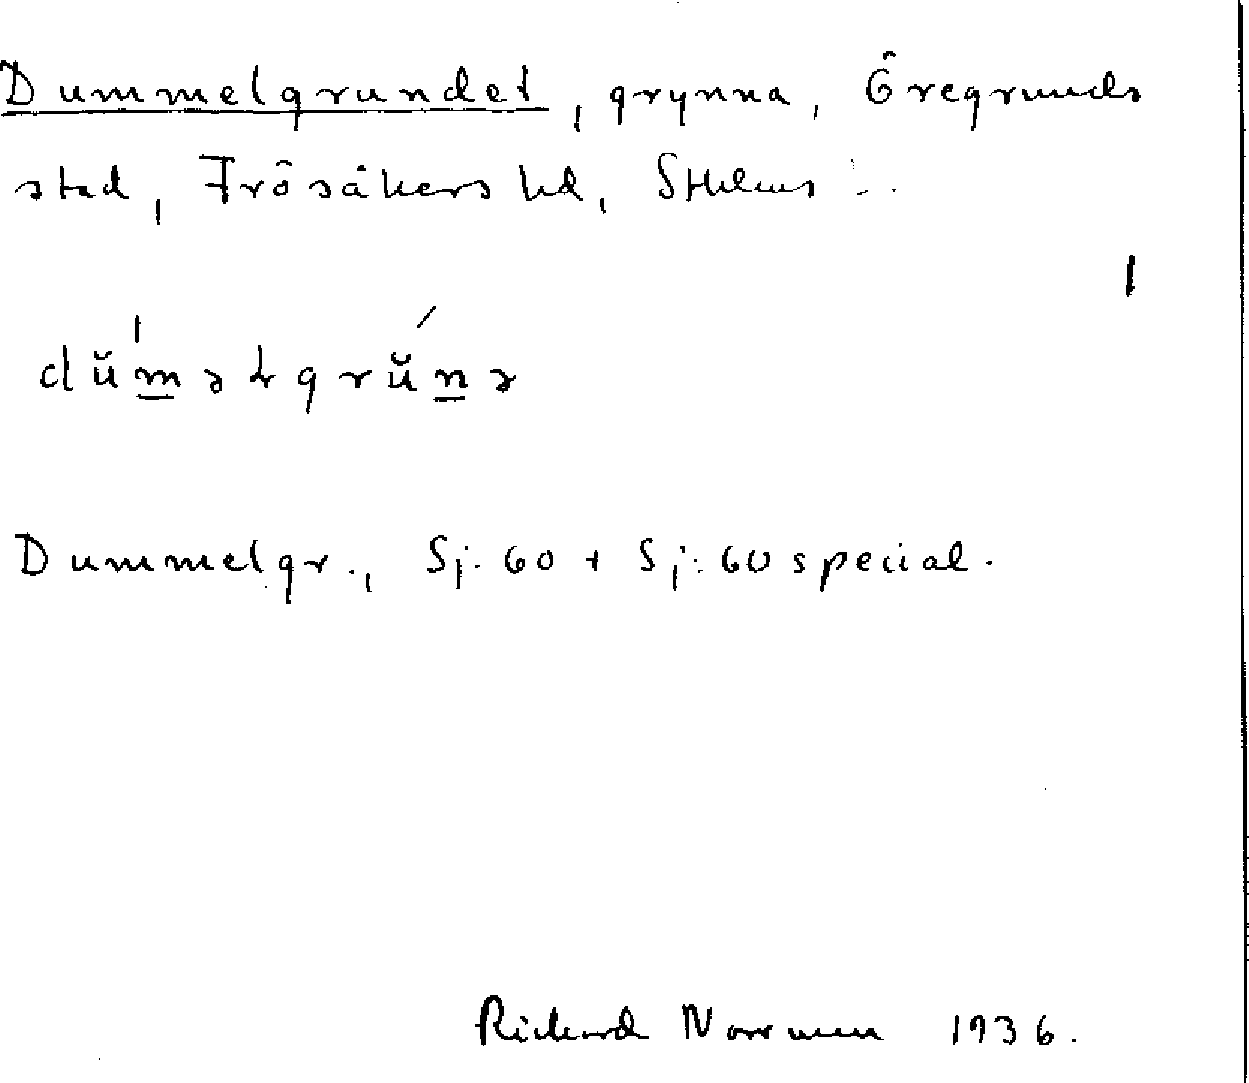 Dummelgrundet, grynna, Öregrunds
stad, Frösåkers hd, Sthlms l.
dŭməɫgrŭnə
Dummelgr., Sj. 60 + Sj. 60 special.
Rickard Norrman 1936.